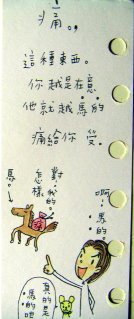 痛。
這種東西。
你越是在意。
他就越馬的
痛給你受。
啊!馬的。
對我的
怎樣
馬。
真的是
馬的吧